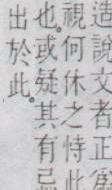 造說文者正爲
視何休之恃此
也。或疑其有
出於此。